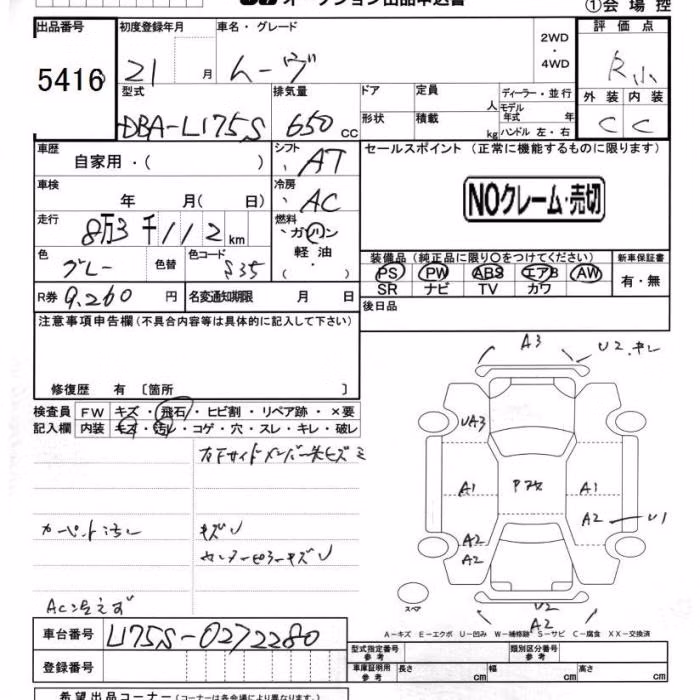 オークション出品申込書
①会場控
出品番号 初度登録年月 車名・グレード 2WD・4WD 評価点
5416 21 月 ムーヴ R小
型式 排気量 ドア 定員 人 ディーラー・並行 外装 内装
DBA-L175S 650 cc 形状 積載 kg モデル年式 年 ハンドル 左・右 C C
車歴 自家用・( ) シフト AT セールスポイント (正常に機能するものに限ります)
車検 年 月( 日) 冷房 AC NOクレーム・売切
走行 8万3千112km 燃料 ガソリン・軽油・( )
色 グレー 色替 色コード S35 装備品 (純正品に限り○をつけてください) 新車保証書
PS PW ABS エアB AW 有・無
SR ナビ TV カワ
R券 9,260円 名変通知期限 月 日 後日品
注意事項申告欄 (不具合内容等は具体的に記入して下さい)
修復歴 有 〔箇所 〕
A3 U2
検査員 FW キズ・飛石・ヒビ割・リペア跡・×要
記入欄 内装 キズ・汚レ・コゲ・穴・スレ・キレ・破レ
UA3
左下サイドメンバー先キズ
A1 A1
A2 U1
カーペット汚レ キズ
A2
A2
スペア
U2
A2
A-キズ E-エクボ U-凹み W-補修跡 S-サビ C-腐食 XX-交換済
車台番号 L175S-0272280
型式指定番号 参考 類別区分番号 参考
登録番号 車庫証明用 参考 長さ cm 幅 cm 高さ cm
希望出品コーナー (コーナーは各会場により異なります。)